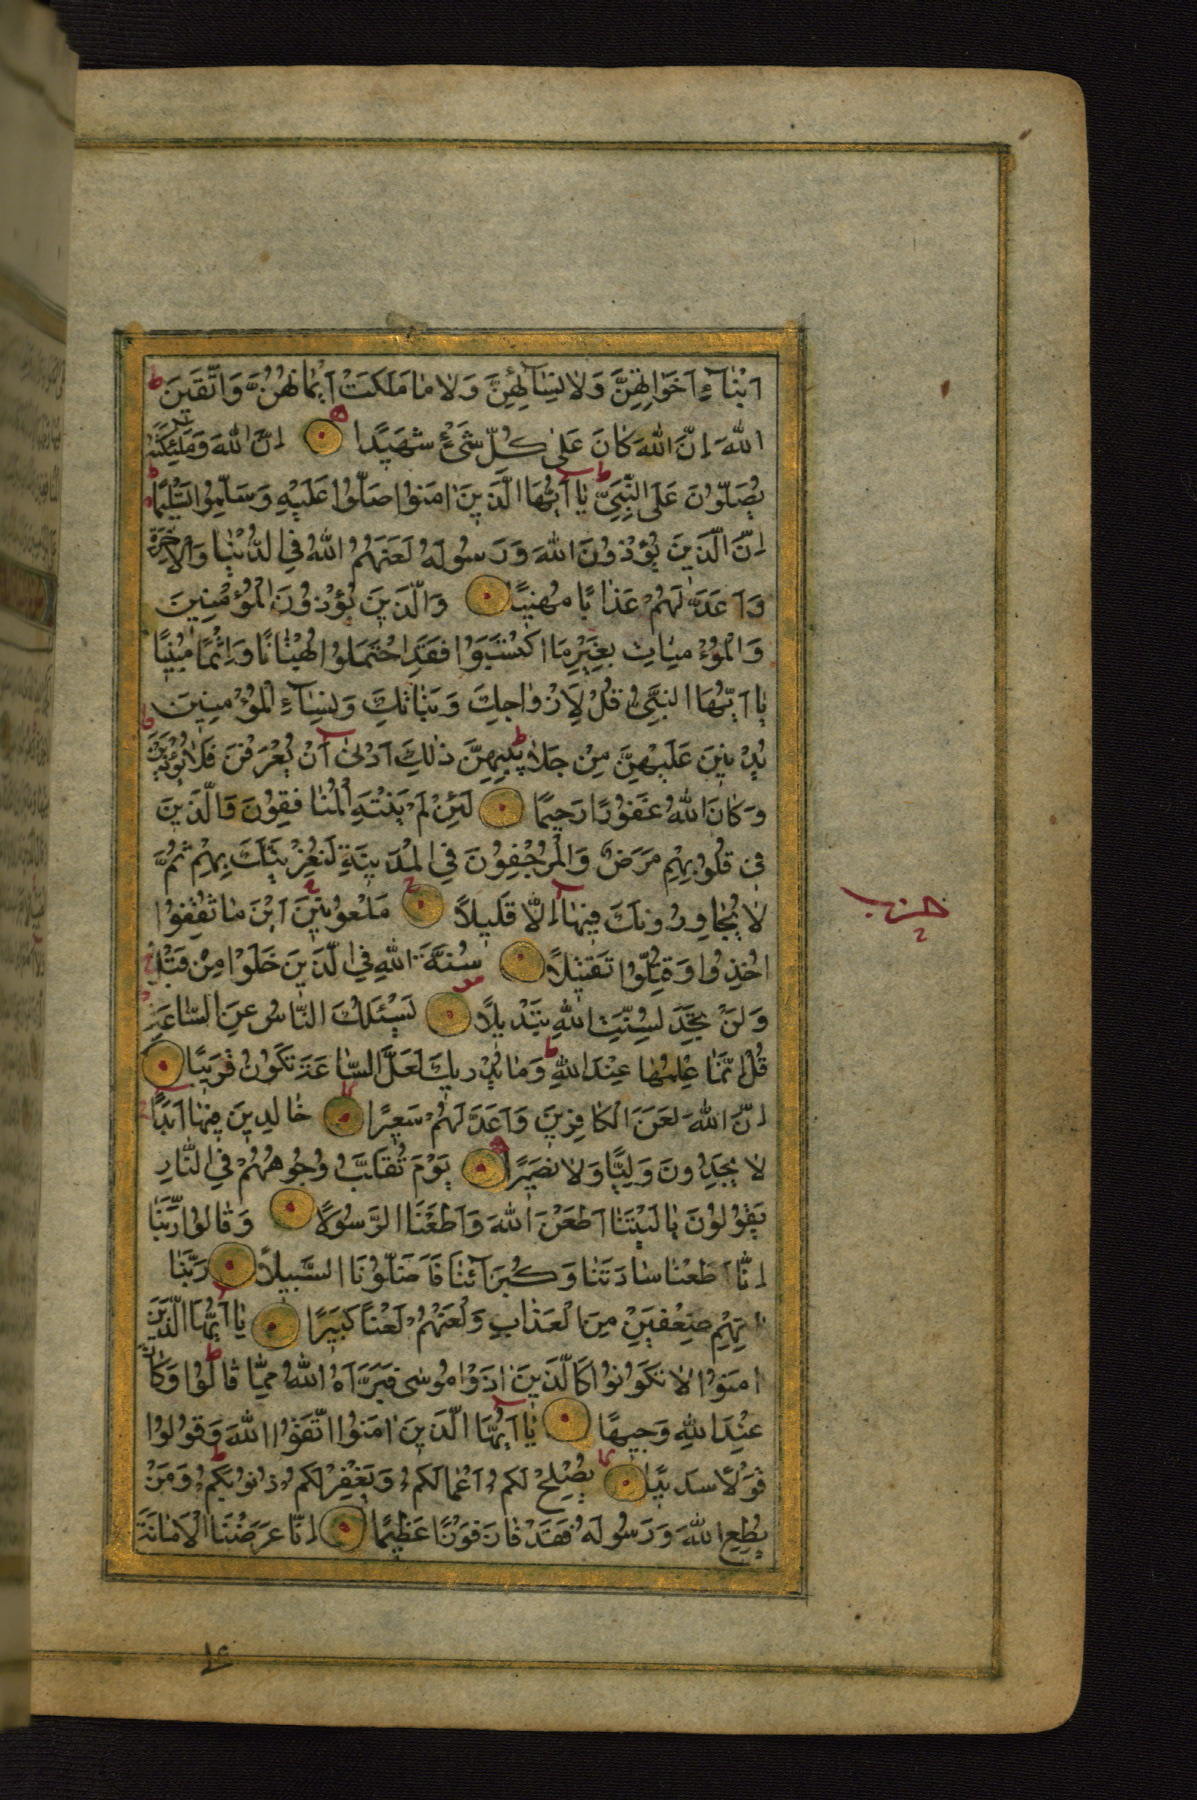 اَبْنٰاۤءِ اَخَوٰاتِهِنَّ وَلٰا نِسٰاۤئِهِنَّ وَلٰا مٰا مَلَكَتْ اَيْمٰانُهُنَّ وَاتَّقَينَ
اللّٰهَ اِنَّ اللّٰهَ كٰانَ عَلىٰ كُلِّ شَىْءٍ شَهيدًا اِنَّ اللّٰهَ وَمَلٰئِكَتَهُ
يُصَلّوُنَ عَلَى النَّبِىِّ يٰا اَيُّهَا الَّذينَ اٰمَنوُا صَلّوُا عَلَيْهِ وَسَلِّمُوا تَسْليمًا
اِنَّ الَّذينَ يُؤْذوُنَ اللّٰهَ وَرَسوُلَهُ لَعَنَهُمُ اللّٰهُ فِى الدُّنْيٰا وَالْاٰخِرَةِ
وَاَعَدَّ لَهُمْ عَذٰابًا مُهينًا وَالَّذينَ يُؤْذوُنَ الْمُؤْمِنينَ
وَالْمُؤْمِنٰاتِ بِغَيْرِ مَا اكْتَسَبَوُا فَقَدِ احْتَمَلوُا بُهْتٰانًا وَاِثْمًا مُبينًا
يٰا اَيُّهَا النَّبِىُّ قُلْ لِاَزْوٰاجِكَ وَبَنٰاتِكَ وَنِسٰاۤءِ الْمُؤْمِنينَ
يُدْنينَ عَلَيْهِنَّ مِنْ جَلٰابيبِهِنَّ ذٰلِكَ اَدْنىٰ اَنْ يُعْرَفْنَ فَلٰا يُؤْذَيْنَ
وَكٰانَ اللّٰهُ غَفوُرًا رَحيمًا لَئِنْ لَمْ يَنْتَهِ الْمُنٰافِقوُنَ وَالَّذينَ
فى قُلوُبِهِمْ مَرَضٌ وَالْمُرْجِفوُنَ فِى الْمَدينَةِ لَنُغْرِيَنَّكَ بِهِمْ ثُمَّ
لٰا يُجٰاوِروُنَكَ فيهٰا اِلّٰا قَليلًا مَلْعوُنينَ اَيْنَ مٰا ثُقِفوُا
اُخِذوُا وَقُتِّلوُا تَقْتيلًا سُنَّةَ اللّٰهِ فِى الَّذينَ خَلَوْا مِنْ قَبْلُ
وَلَنْ تَجِدَ لِسُنَّةِ اللّٰهِ تَبْديلًا يَسْئَلُكَ النّٰاسُ عَنِ السّٰاعَةِ
قُلْ اِنَّمٰا عِلْمُهٰا عِنْدَ اللّٰهِ وَمٰا يُدْريكَ لَعَلَّ السّٰاعَةَ تَكوُنُ قَريبًا
اِنَّ اللّٰهَ لَعَنَ الْكٰافِرينَ وَاَعَدَّ لَهُمْ سَعيرًا خٰالِدينَ فيهٰا اَبَدًا
لٰا يَجِدوُنَ وَلِيًّا وَلٰا نَصيرًا يَوْمَ تُقَلَّبُ وُجوُهُهُمْ فِى النّٰارِ
يَقوُلوُنَ يٰا لَيْتَنٰا اَطَعْنَا اللّٰهَ وَاَطَعْنَا الرَّسوُلَا وَقٰالوُا رَبَّنٰا
اِنّٰا اَطَعْنٰا سٰادَتَنٰا وَكُبَرٰاۤئَنٰا فَاَضَلّوُنَا السَّبيلَا رَبَّنٰا
اٰتِهِمْ ضِعْفَيْنِ مِنَ الْعَذٰابِ وَالْعَنْهُمْ لَعْنًا كَبيرًا يٰا اَيُّهَا الَّذينَ
اٰمَنوُا لٰا تَكوُنوُا كَالَّذينَ اٰذَوْا مُوسٰى فَبَرَّاَهُ اللّٰهُ مِمّٰا قٰالوُا وَكٰانَ
عِنْدَ اللّٰهِ وَجيهًا يٰا اَيُّهَا الَّذينَ اٰمَنوُا اتَّقوُا اللّٰهَ وَقوُلوُا
قَوْلًا سَديدًا يُصْلِحْ لَكُمْ اَعْمٰالَكُمْ وَيَغْفِرْ لَكُمْ ذُنوُبَكُمْ وَمَنْ
يُطِعِ اللّٰهَ وَرَسوُلَهُ فَقَدْ فٰازَ فَوْزًا عَظيمًا اِنّٰا عَرَضْنَا الْاَمٰانَةَ
حزب